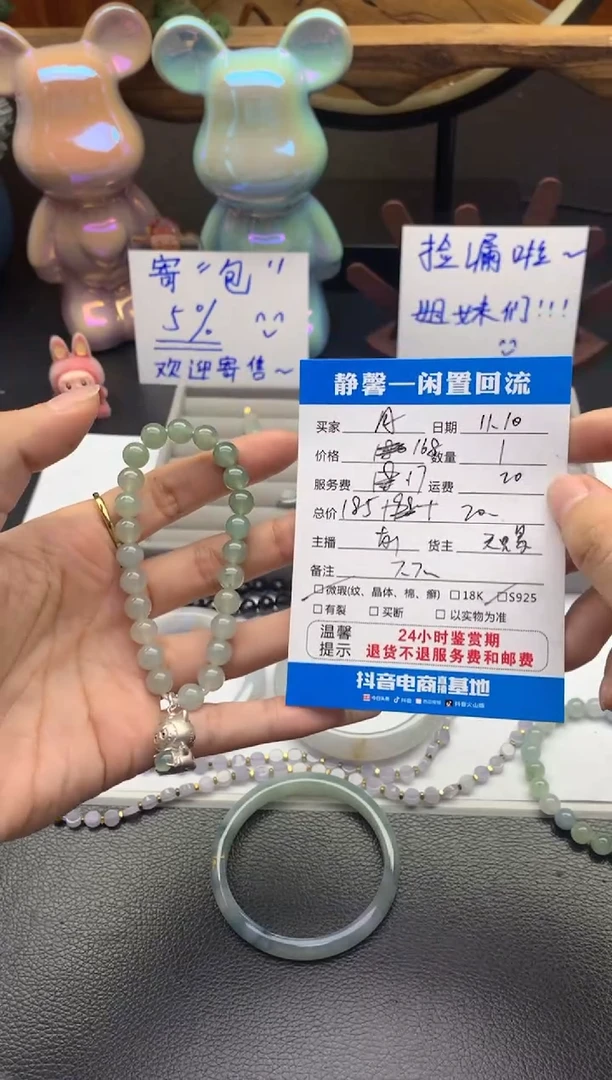 寄“包”
5%
欢迎寄售~
捡漏啦~
姐妹们!!!
静馨—闲置回流
买家 日期 11.10
价格 168 数量 1
服务费 +7 运费 20
总价 185+ 20
主播 货主
备注 7.7
□微瑕(纹、晶体、棉、癣) □18K □S925
□有裂 □买断 □以实物为准
温馨提示
24小时鉴赏期
退货不退服务费和邮费
抖音电商直播基地
今日头条 抖音 抖音火山版